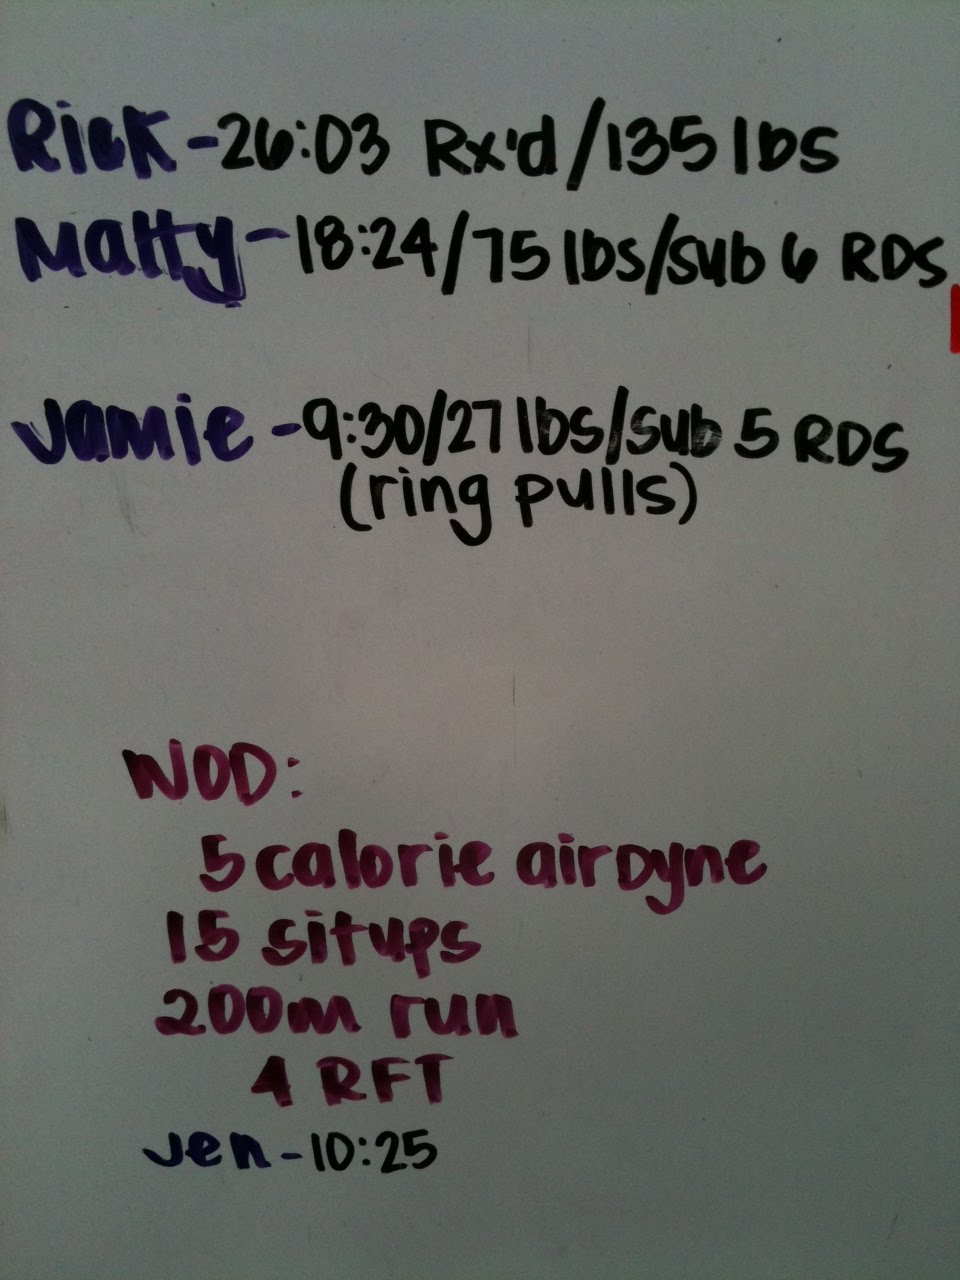 Rick - 26:03 Rx'd / 135 lbs
Matty - 18:24 / 75 lbs / sub 6 RDS
Jamie - 9:30 / 27 lbs / sub 5 RDS
(ring pulls)
WOD:
5 calorie airdyne
15 situps
200m run
4 RFT
Jen - 10:25